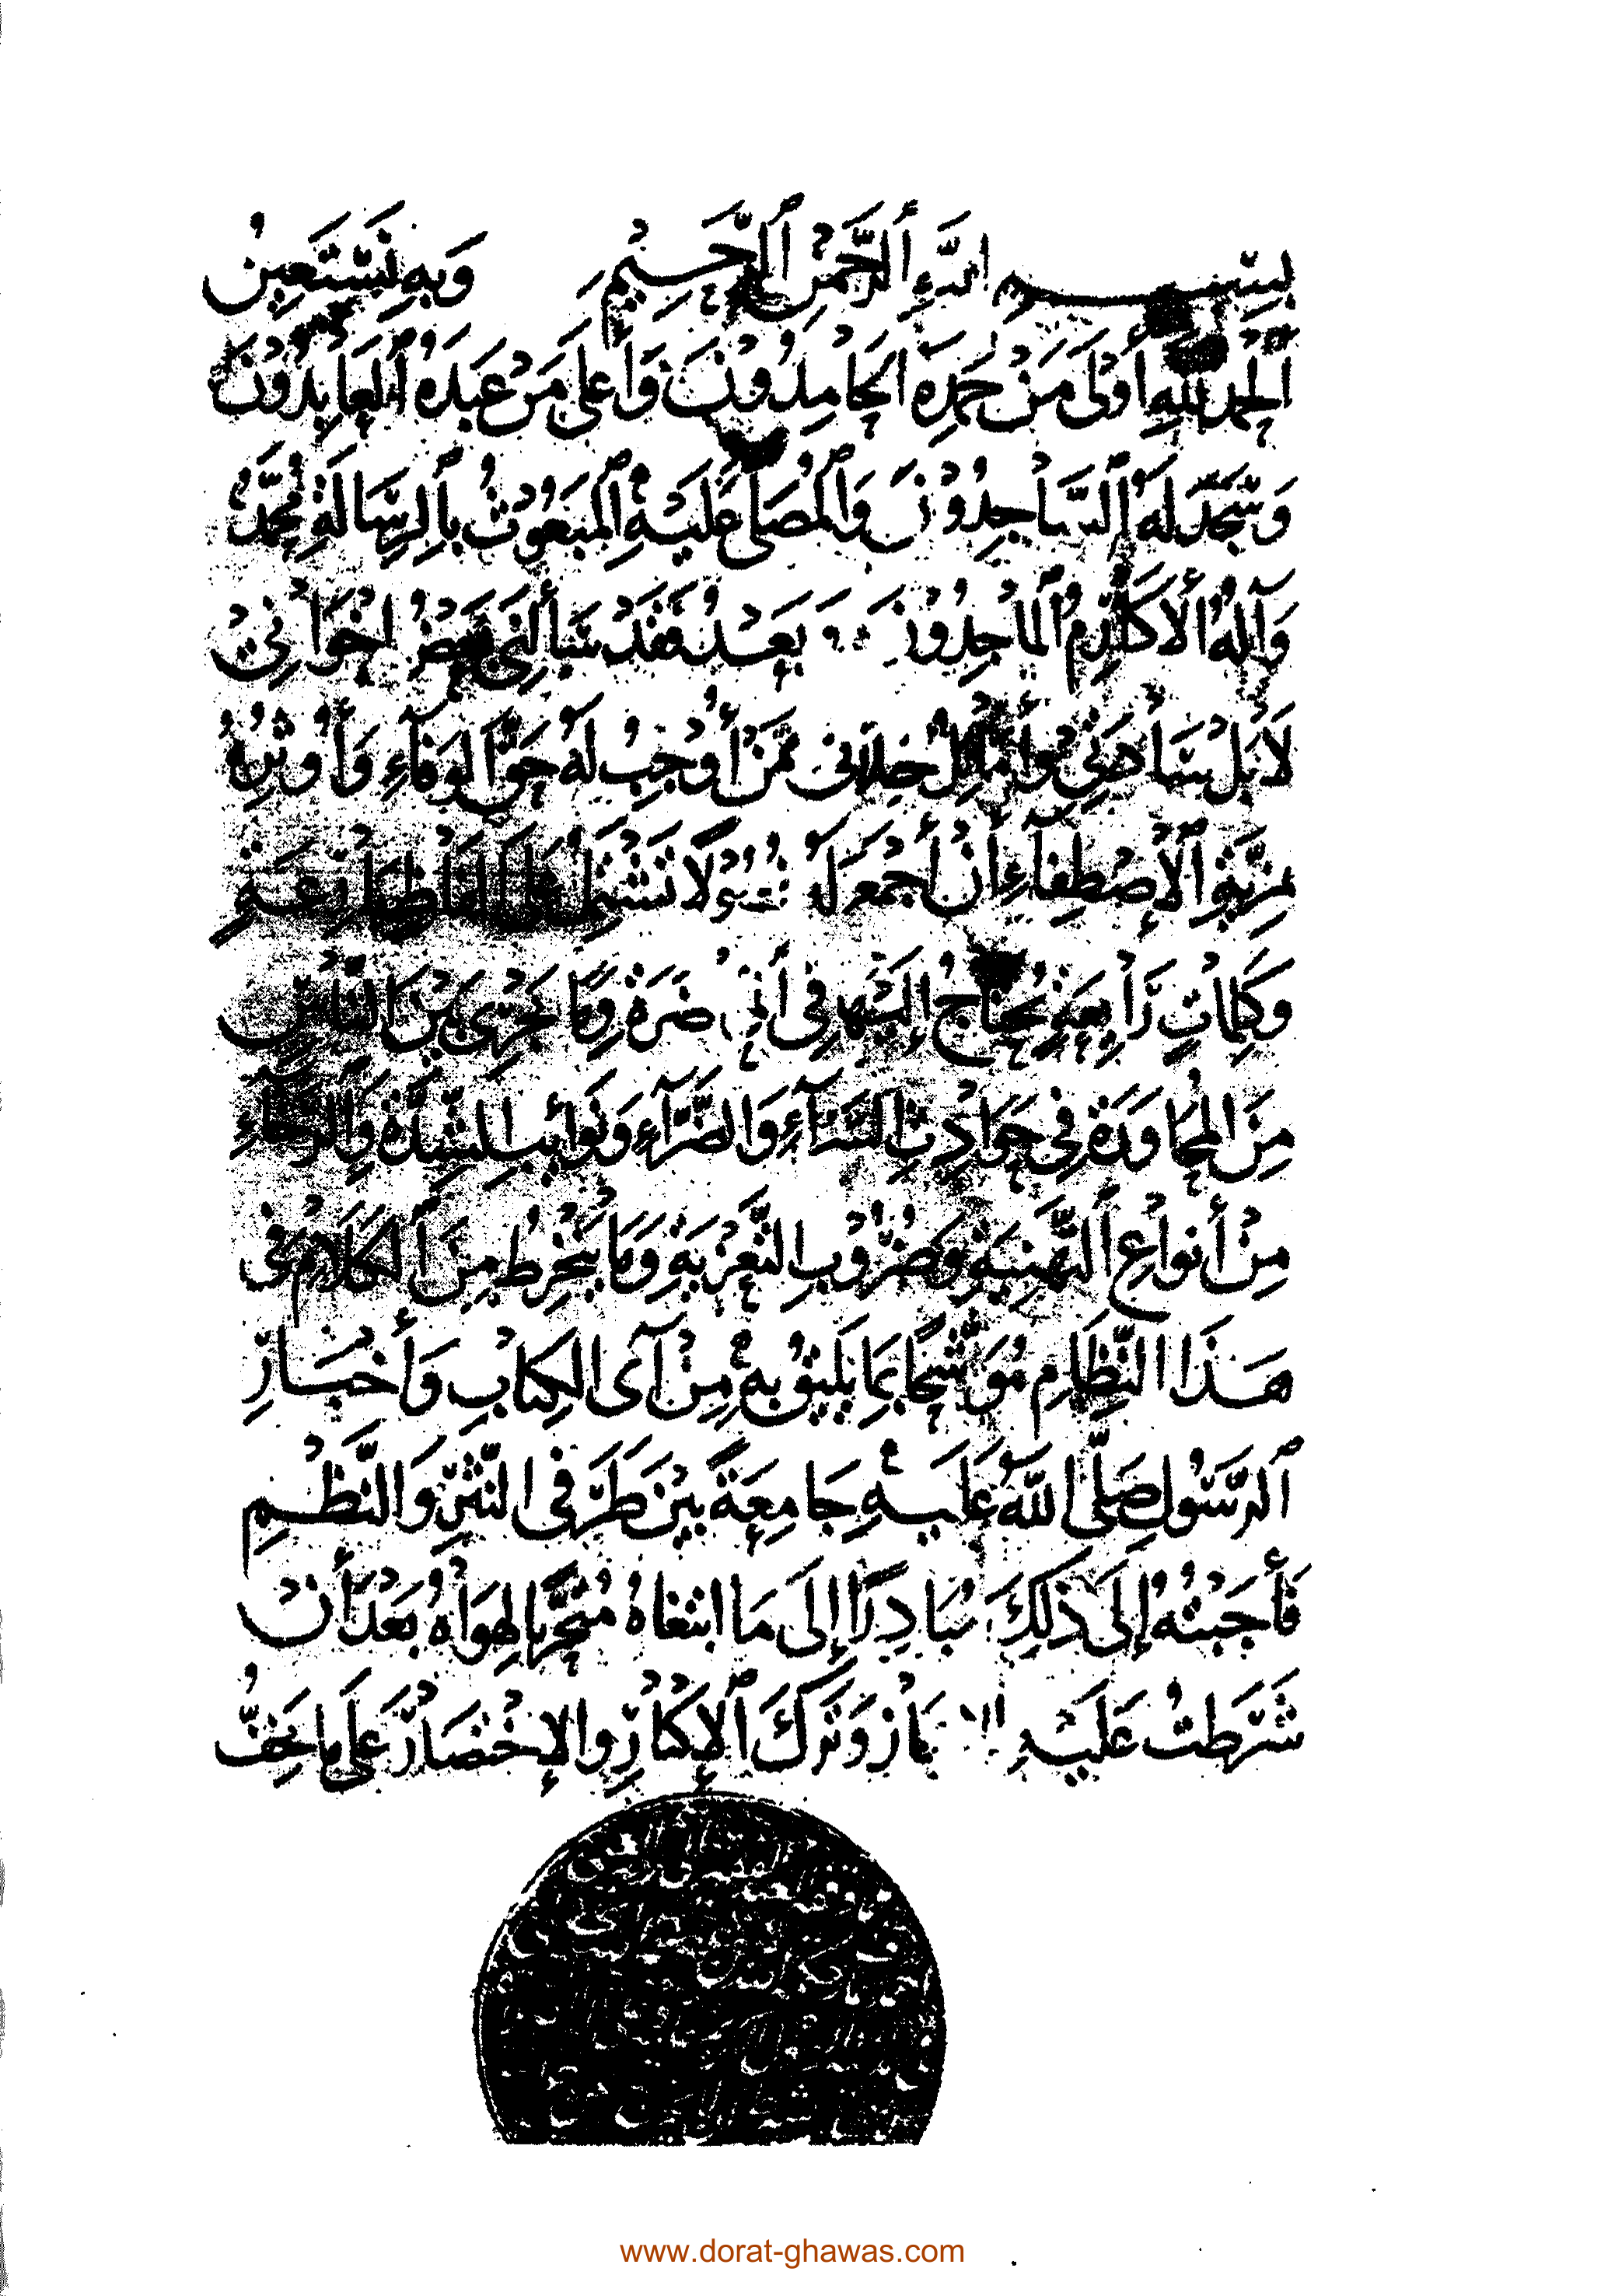 بِسْمِ اللَّهِ الرَّحْمَنِ الرَّحِيمِ وَبِهِ نَسْتَعِينُ
الْحَمْدُ لِلَّهِ أَوْلَى مَنْ حَمِدَهُ الْحَامِدُونَ وَأَعْلَى مَنْ عَبَدَهُ الْعَابِدُونَ
وَسَجَدَ لَهُ السَّاجِدُونَ وَالْمُصَلَّى عَلَيْهِ الْمَبْعُوثُ بِالرِّسَالَةِ مُحَمَّدٌ
وَآلُهُ الْأَكَارِمُ الْمَاجِدُونَ بَعْدُ فَقَدْ سَأَلَنِي بَعْضُ إِخْوَانِي
لَا بَلْ سَادَتِي وَأَمَاثِلُ خُلَّانِي مِمَّنْ أُوجِبُ لَهُ حَقَّ الْوَفَاءِ وَأُوثِرُهُ
الْإِصْطِفَاءِ أَنْ أَجْمَعَ لَهُ تَشْتَمِلُ عَلَى أَلْفَاظٍ
وَكَلِمَاتٍ رَائِعَةٍ يُحْتَاجُ إِلَيْهَا فِي مَا يَجْرِي بَيْنَ النَّاسِ
مِنَ الْمُحَاوَرَةِ فِي حَوَادِثِ السَّرَّاءِ وَالضَّرَّاءِ وَنَوَائِبِ الشِّدَّةِ وَالرَّخَاءِ
مِنْ أَنْوَاعِ التَّهْنِيَةِ وَضُرُوبِ التَّعْزِيَةِ وَمَا يَنْخَرِطُ مِنَ الْكَلَامِ فِي
هَذَا النِّظَامِ مُوَشَّحًا بِمَا يَلِيقُ بِهِ مِنْ آيِ الْكِتَابِ وَأَخْبَارِ
الرَّسُولِ صَلَّى اللَّهُ عَلَيْهِ جَامِعَةً بَيْنَ طَرَفَيِ النَّثْرِ وَالنَّظْمِ
فَأَجَبْتُهُ إِلَى ذَلِكَ مُبَادِرًا إِلَى مَا ابْتَغَاهُ مُتَحَرِّيًا لِهَوَاهُ بَعْدَ أَنْ
شَرَطْتُ عَلَيْهِ وَتَرْكَ الْإِكْثَارِ وَالْإِخْتِصَارَ عَلَى مَا يَخِفُّ
www.dorat-ghawas.com